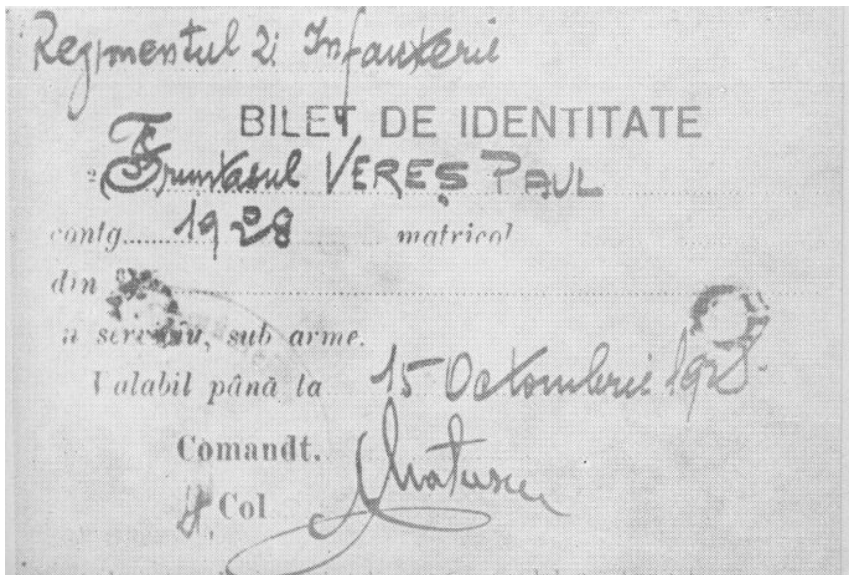 Regimentul 2i Infanterie
BILET DE IDENTITATE
Fruntasul VEREȘ PAUL
contg. 1928 matricol
din
n serviciu, sub arme.
Valabil până la 15 Octombrie 1928.
Comandt.
Col